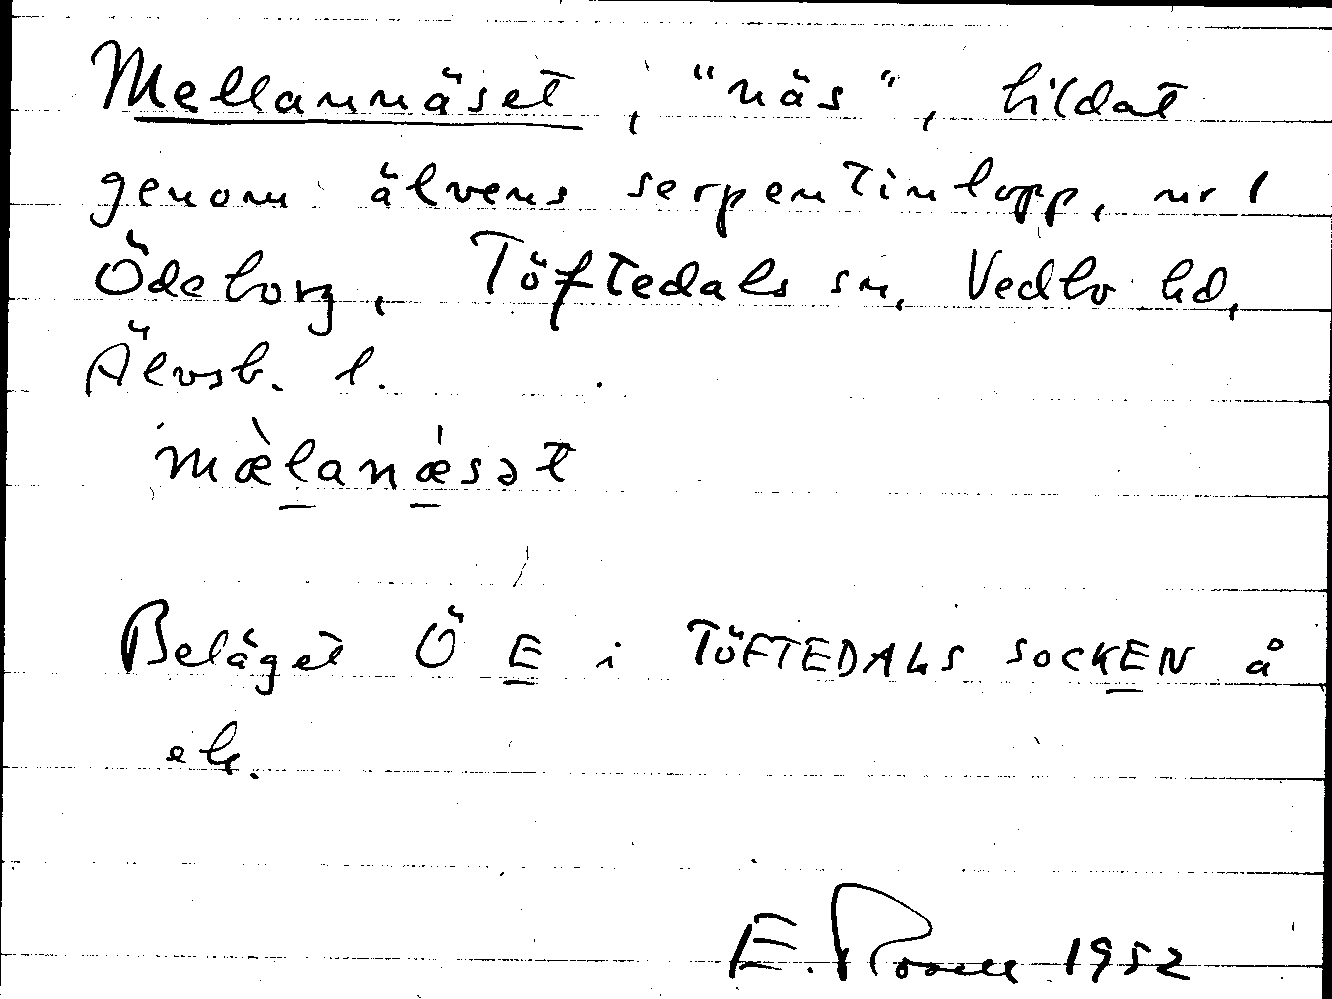 Mellannäset, "näs", bildat
genom älvens serpentinlopp, nr 1
Ödeborg, Töftedals sn, Vedbo hd,
Älvsb. l.
mæ̀lanǽsət
Beläget Ö E i TÖFTEDALS SOCKEN å
ek.
E. 1952